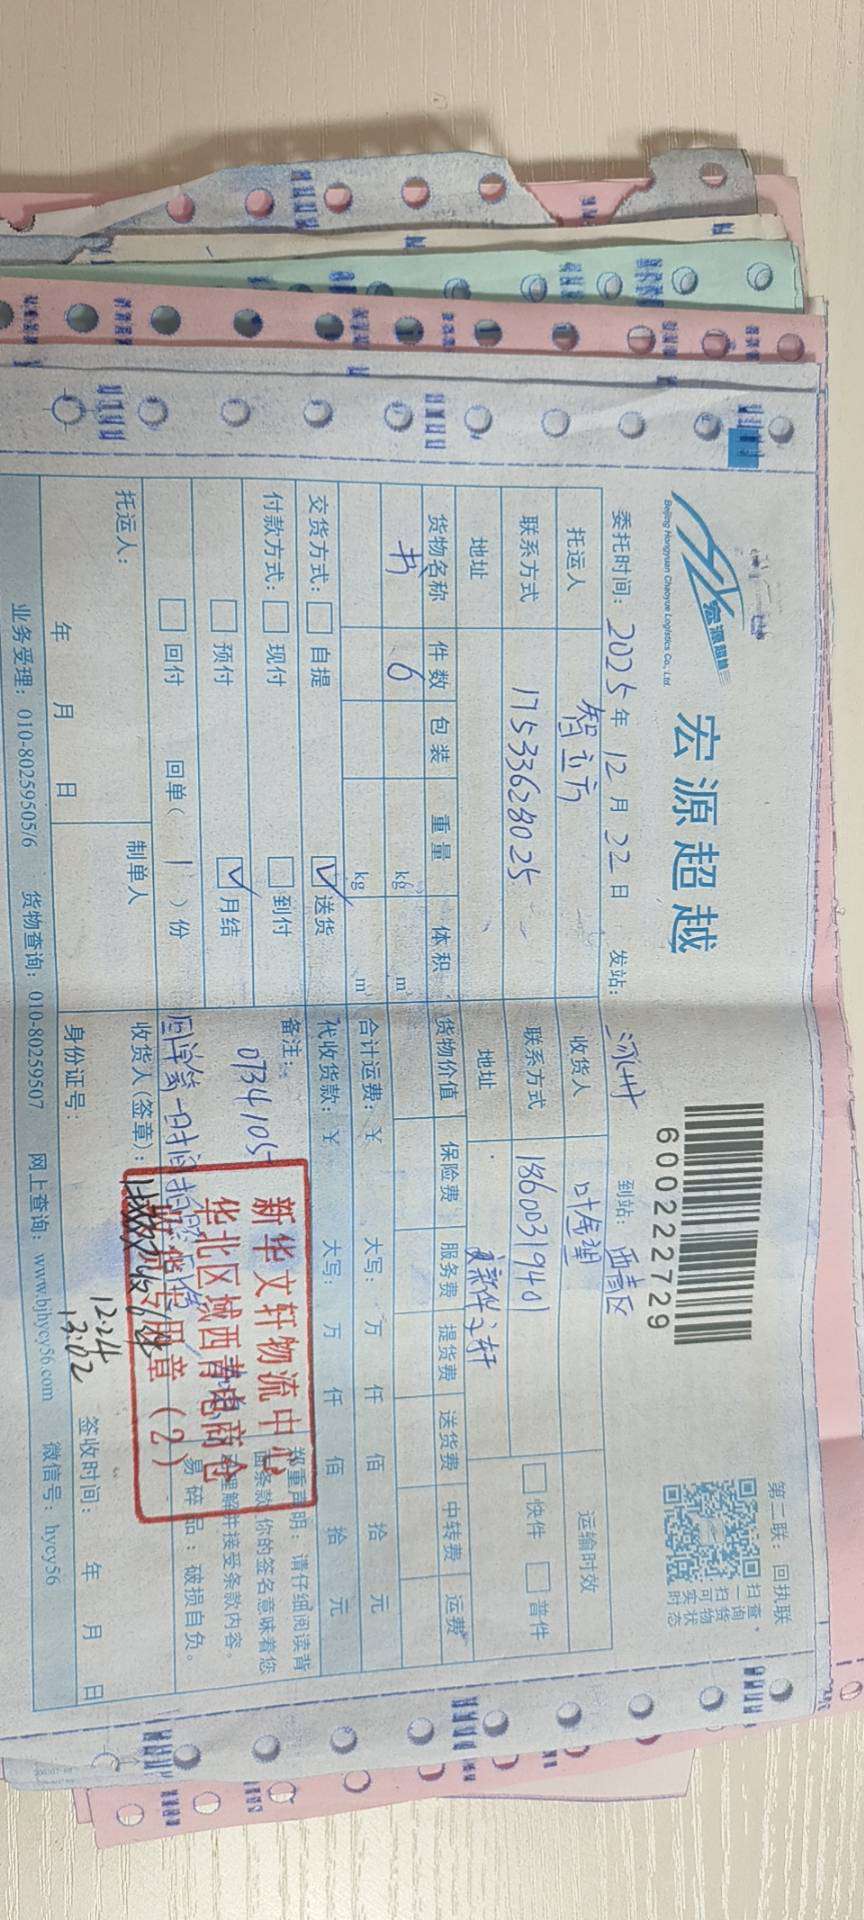 宏源超越
Beijing Hongyuan Chaoyue Logistics Co., Ltd
宏源超越
600222729
第二联：回执联
扫一扫 查询货物实时状态
委托时间：2025年12月22日 发站： 到站：西青区
托运人 智立方 收货人 叶金理 运输时效
联系方式 17533628025 联系方式 18600319401 快件 普件
地址 地址 新华文轩
货物名称 件数 包装 重量 体积 货物价值 保险费 服务费 提货费 送货费 中转费 运费
书 6 kg m³
kg m³ 合计运费：¥ 大写： 万 仟 佰 拾 元
交货方式： 自提 送货 代收货款：¥ 大写： 万 仟 佰 拾 元
付款方式： 现付 到付 备注： 郑重声明：请仔细阅读背面条款，你的签名意味着您理解并接受条款内容。
预付 月结 0734105
回付 回单（1）份 易碎品：破损自负。
新华文轩物流中心
华北区域西青电商仓
专用章（2）
托运人： 制单人 收货人(签章)：
身份证号：
12.24
13:02
年 月 日 签收时间： 年 月 日
业务受理：010-80259505/6 货物查询：010-80259507 网上查询：www.bjhycy56.com 微信号：hycy56